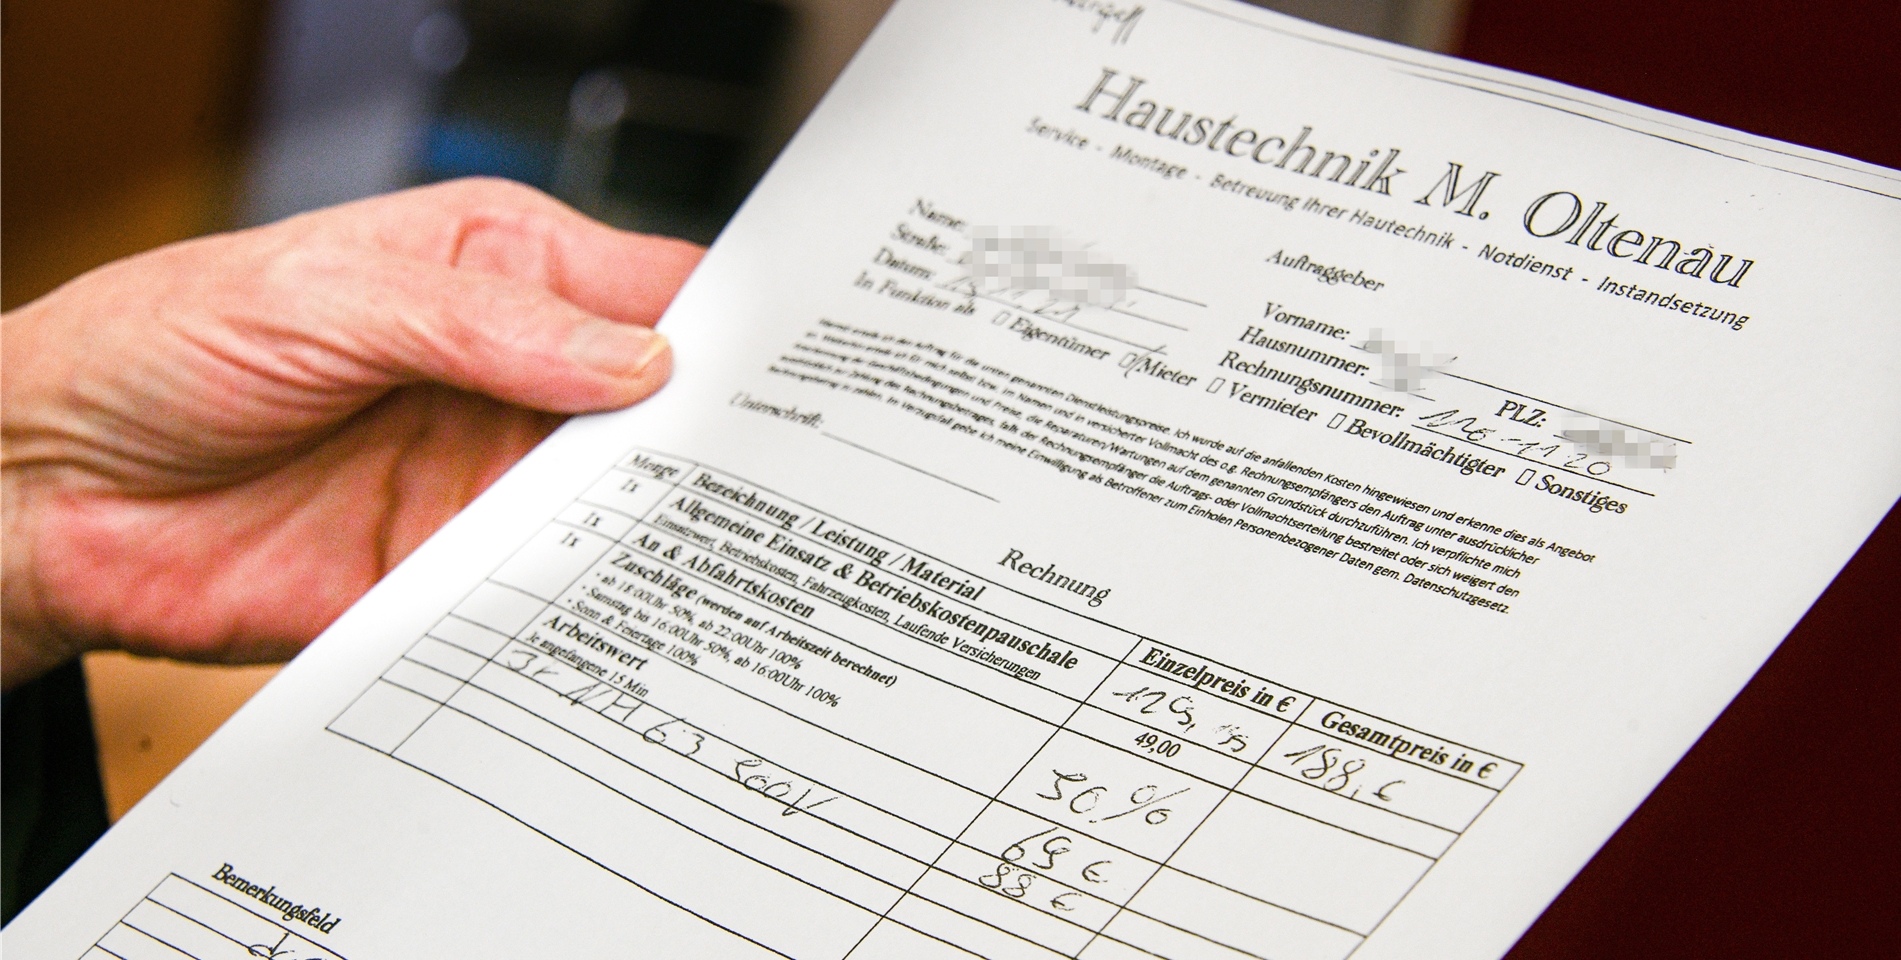 Haustechnik M. Oltenau
Service - Montage - Betreuung Ihrer Hautechnik - Notdienst - Instandsetzung
Auftraggeber
Name:
Vorname:
Straße:
Hausnummer:
PLZ:
Datum:
Rechnungsnummer:
In Funktion als Eigentümer Mieter Vermieter Bevollmächtigter Sonstiges
Hiermit erteile ich den Auftrag für die unten genannten Dienstleistungspreise. Ich wurde auf die anfallenden Kosten hingewiesen und erkenne dies als Angebot
an. Weiterhin erteile ich für mich selbst bzw. im Namen und in versicherter Vollmacht des o.g. Rechnungsempfängers den Auftrag unter ausdrücklicher
Anerkennung der Geschäftsbedingungen und Preise, die Reparaturen/Wartungen auf dem genannten Grundstück durchzuführen. Ich verpflichte mich
zur Zahlung des Rechnungsbetrages, falls der Rechnungsempfänger die Auftrags- oder Vollmachtserteilung bestreitet oder sich weigert den
Rechnungsbetrag zu zahlen. Im Verzugsfall gebe ich meine Einwilligung als Betroffener zum Einholen Personenbezogener Daten gem. Datenschutzgesetz.
Unterschrift:
Rechnung
Menge Bezeichnung / Leistung / Material Einzelpreis in € Gesamtpreis in €
1x Allgemeine Einsatz & Betriebskostenpauschale 188,€
Einsatzwert, Betriebskosten, Fahrzeugkosten, Laufende Versicherungen
1x An & Abfahrtskosten 49,00
1x Zuschläge (werden auf Arbeitszeit berechnet) 50%
· ab 18:00Uhr 50%, ab 22:00Uhr 100%
· Samstag bis 16:00Uhr 50%, ab 16:00Uhr 100%
· Sonn & Feiertage 100%
Arbeitswert 69 €
Je angefangene 15 Min
3x NH 63 500V 88 €
Bemerkungsfeld